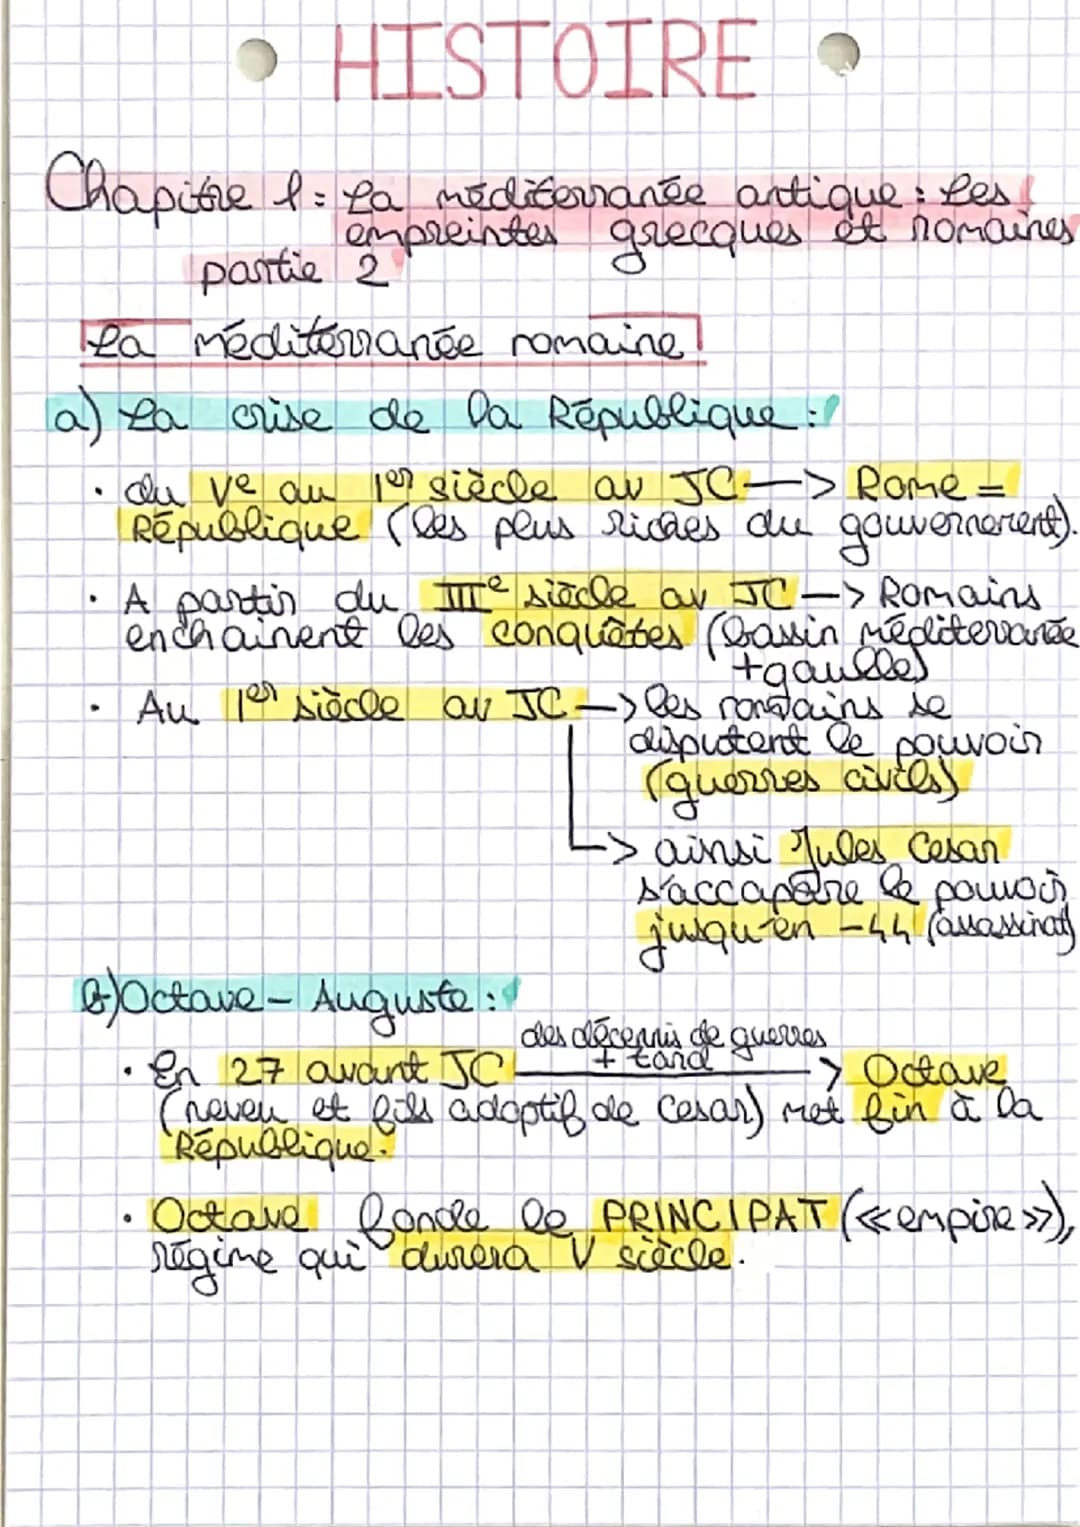 HISTOIRE
Chapitre 1 : La méditerranée antique : Les
empreintes grecques et romaines
partie 2
La méditerranée romaine
a) La crise de la République :
· du Ve au 1er siècle av JC —> Rome =
République (les plus riches du gouvernement).
· A partir du IIIe siècle av JC —> Romains
enchainent les conquêtes (bassin méditerranée
+ gaulle)
· Au 1er siècle av JC —> les romains se
disputent le pouvoir
(guerres civils)
—> ainsi Jules Cesar
s'accapare le pouvoir
jusqu'en -44 (assassinat)
b) Octave - Auguste :
des décennis de guerres
· En 27 avant JC + tard —> Octave
(neveu et fils adoptif de Cesar) met fin à la
République.
· Octave fonde le PRINCIPAT (« empire »),
régime qui durera V siècle.